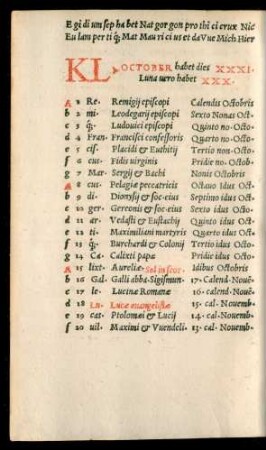 E gi di un sep ha bet Nat gor gon pro thi ci crux Nic
Eu lam per ti q̃; Mat Mau ri ci us et da Vue Mich Hier
KL OCTOBER habet dies XXXI.
Luna uero habet XXX.
A 2 Re. Remigij episcopi Calendis Octobris
b 2 mi. Leodegarij episcopi Sexto Nonas Oct.
c 3 q̃; Ludouici episcopi Quinto no. Octo.
d 4 Fran. Francisci confessoris Quarto no. Octo.
e 5 cis. Placidi & Eustbitij Tertio non. Octob.
f 6 cuc. Fidis virginis Pridie no. Octob.
g 7 Mar. Sergij & Bachi Nonis Octobris
A 8 cus. Pelagiæ peccatricis Octauo idus Oct.
b 9 di. Dionysij & soc-eius Septimo idus Oct.
c 20 ger. Gereonis & soc-eius Sexto idus Octob.
d 11 ar. Vedasti & Eustachij Quinto idus Oct.
e 12 ti. Maximiliani martyris Quarto idus Oct.
f 13 q̃; Burchardi & Colonij Tertio idus Octo.
g 14 Ca. Calixti papæ Pridie idus Octo.
A 15 lixt. Aureliæ. Sol in scor. Idibus Octobris
b 16 Gal. Galli abba. Sigismun. 17. calend. Nouē.
c 17 le. Lucinæ Romanæ 16. calend. Nouē.
d 18 Lu. Lucæ euangelistæ 15. cal. Nouemb.
e 19 cas. Ptolomæi & Lucij 14. cal. Nouemb.
f 20 uil. Maximi & Vuendeli. 13. cal. Nouemb.